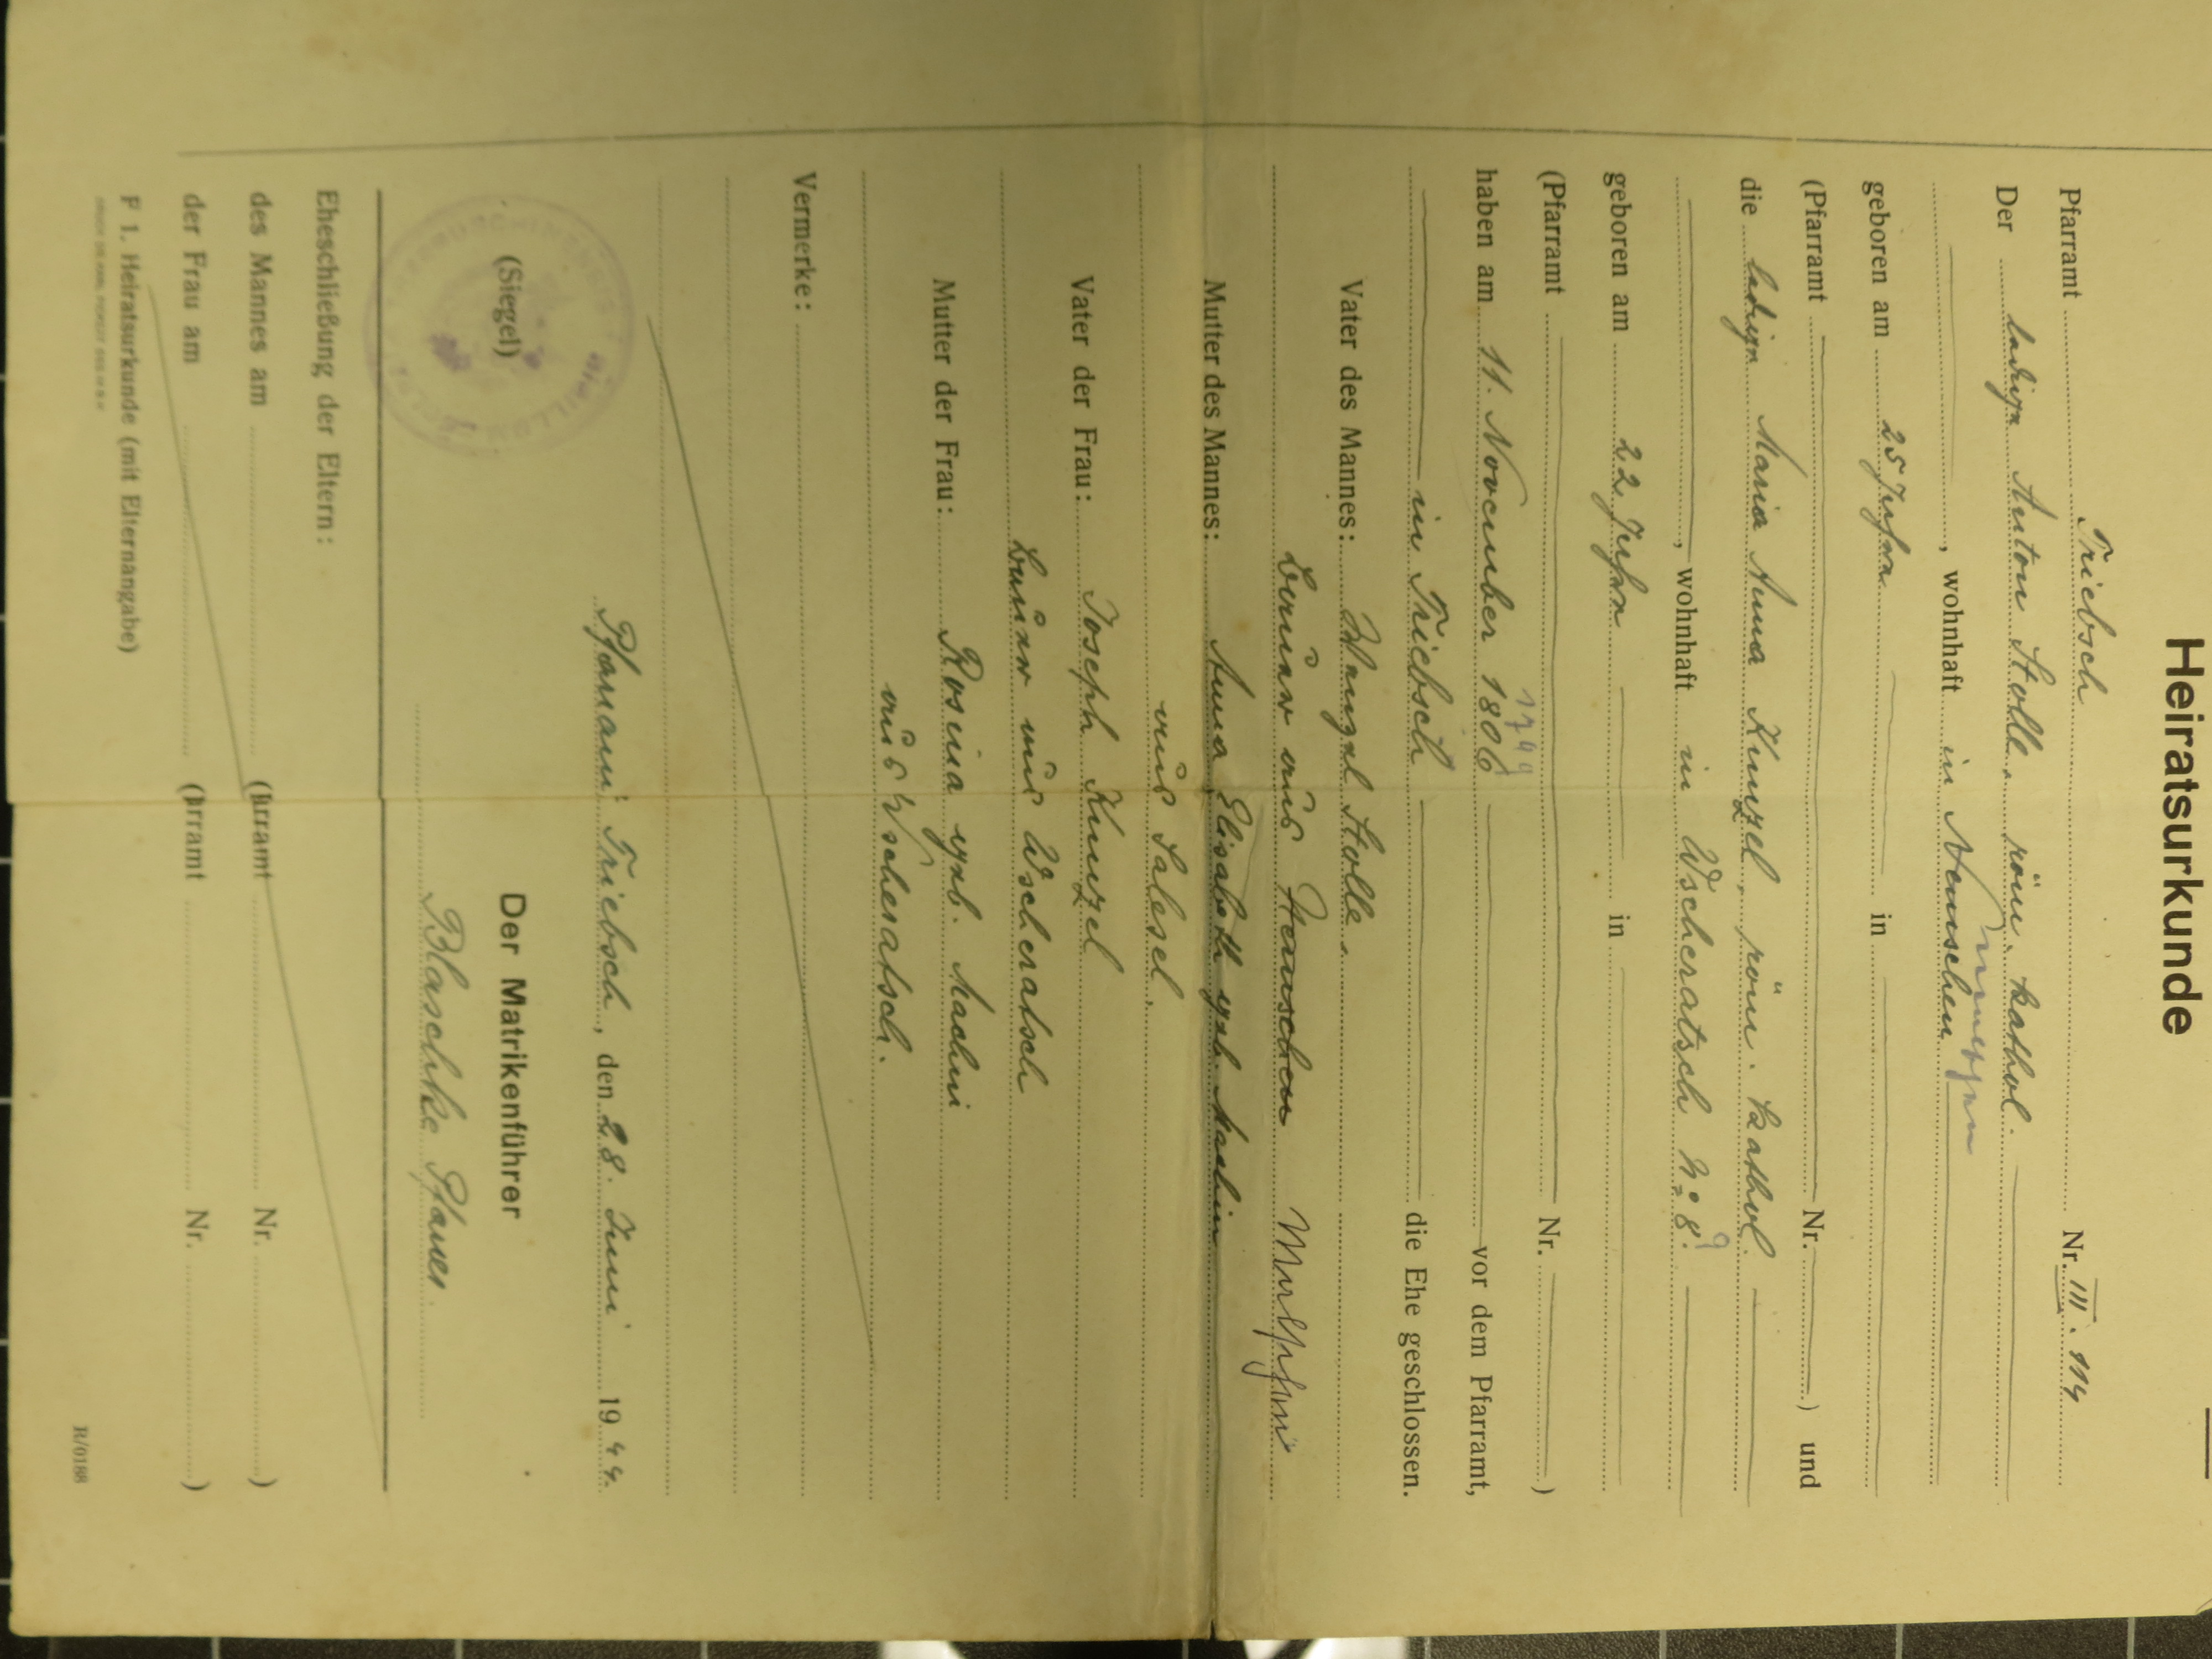 Heiratsurkunde
Pfarramt Triebsch Nr. III. 114
Der ledige Anton Stolle, röm. kathol.
, wohnhaft in Nemschen
geboren am 25 Jahre in
(Pfarramt Nr. ) und
die ledige Maria Anna Kunzel, röm. kathol.
9
, wohnhaft in Wscheratsch No: 8.
geboren am 22 Jahre in
(Pfarramt Nr. )
1799
haben am 11. November 1806 vor dem Pfarramt,
in Triebsch die Ehe geschlossen.
Vater des Mannes: Wenzel Stolle,
Bauer aus Nemschen
Mutter des Mannes: Anna Elisabeth geb. Machin
aus Salesel.
Vater der Frau: Joseph Kunzel
Bauer aus Wscheratsch
Mutter der Frau: Rosina geb. Machin
aus Wscheratsch.
Vermerke:
Pfarramt Triebsch, den 28. Juni 1944.
(Siegel)
Der Matrikenführer
Blaschke Pfarrer
Eheschließung der Eltern:
des Mannes am (Pfarramt Nr. )
der Frau am (Pfarramt Nr. )
F 1. Heiratsurkunde (mit Elternangabe)
R/0188